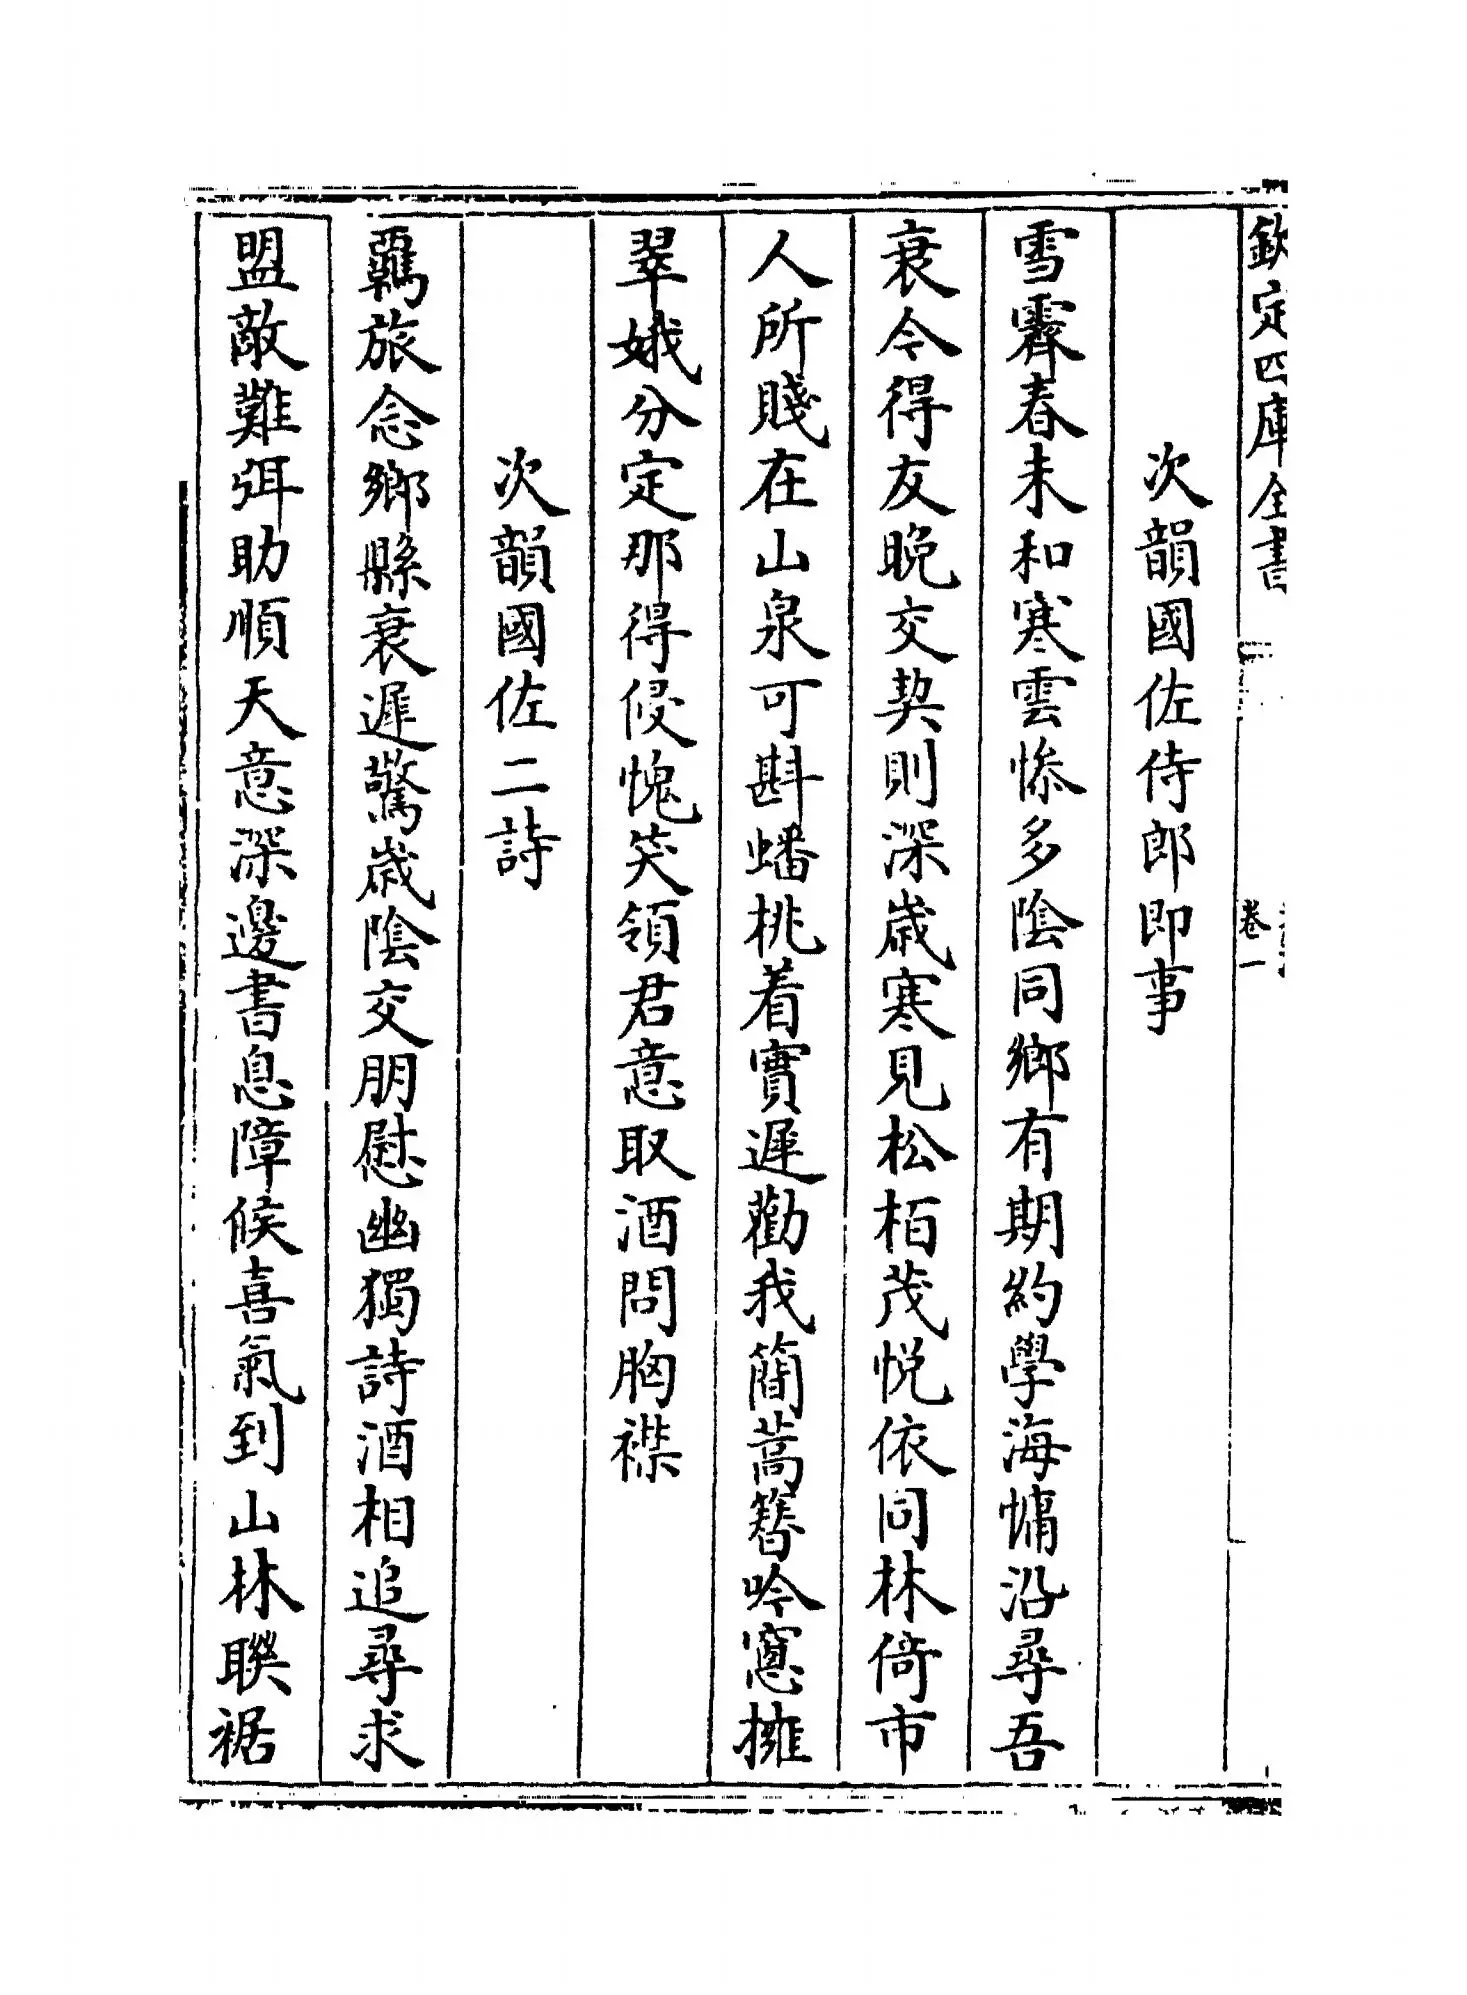 欽定四庫全書
卷一
次韻國佐侍郎即事
雪霽春未和寒雲慘多陰同鄉有期約學海慵沿尋吾
衰今得友晚交契則深歲寒見松栢茂悦依同林倚市
人所賤在山泉可斟蟠桃着實遲勸我簡蒿簪吟窻擁
翠娥分定那得侵愧笑領君意取酒問胸襟
次韻國佐二詩
羇旅念鄉縣衰遲驚歲陰交朋慰幽獨詩酒相追尋求
盟敵難弭助順天意深邊書息障候喜氣到山林聯裾